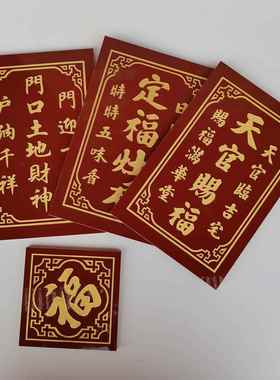 門迎
門口土地財神
戶納千祥
日
定福灶
時時五味香
天官臨吉宅
天官賜福
賜福滿華堂
福